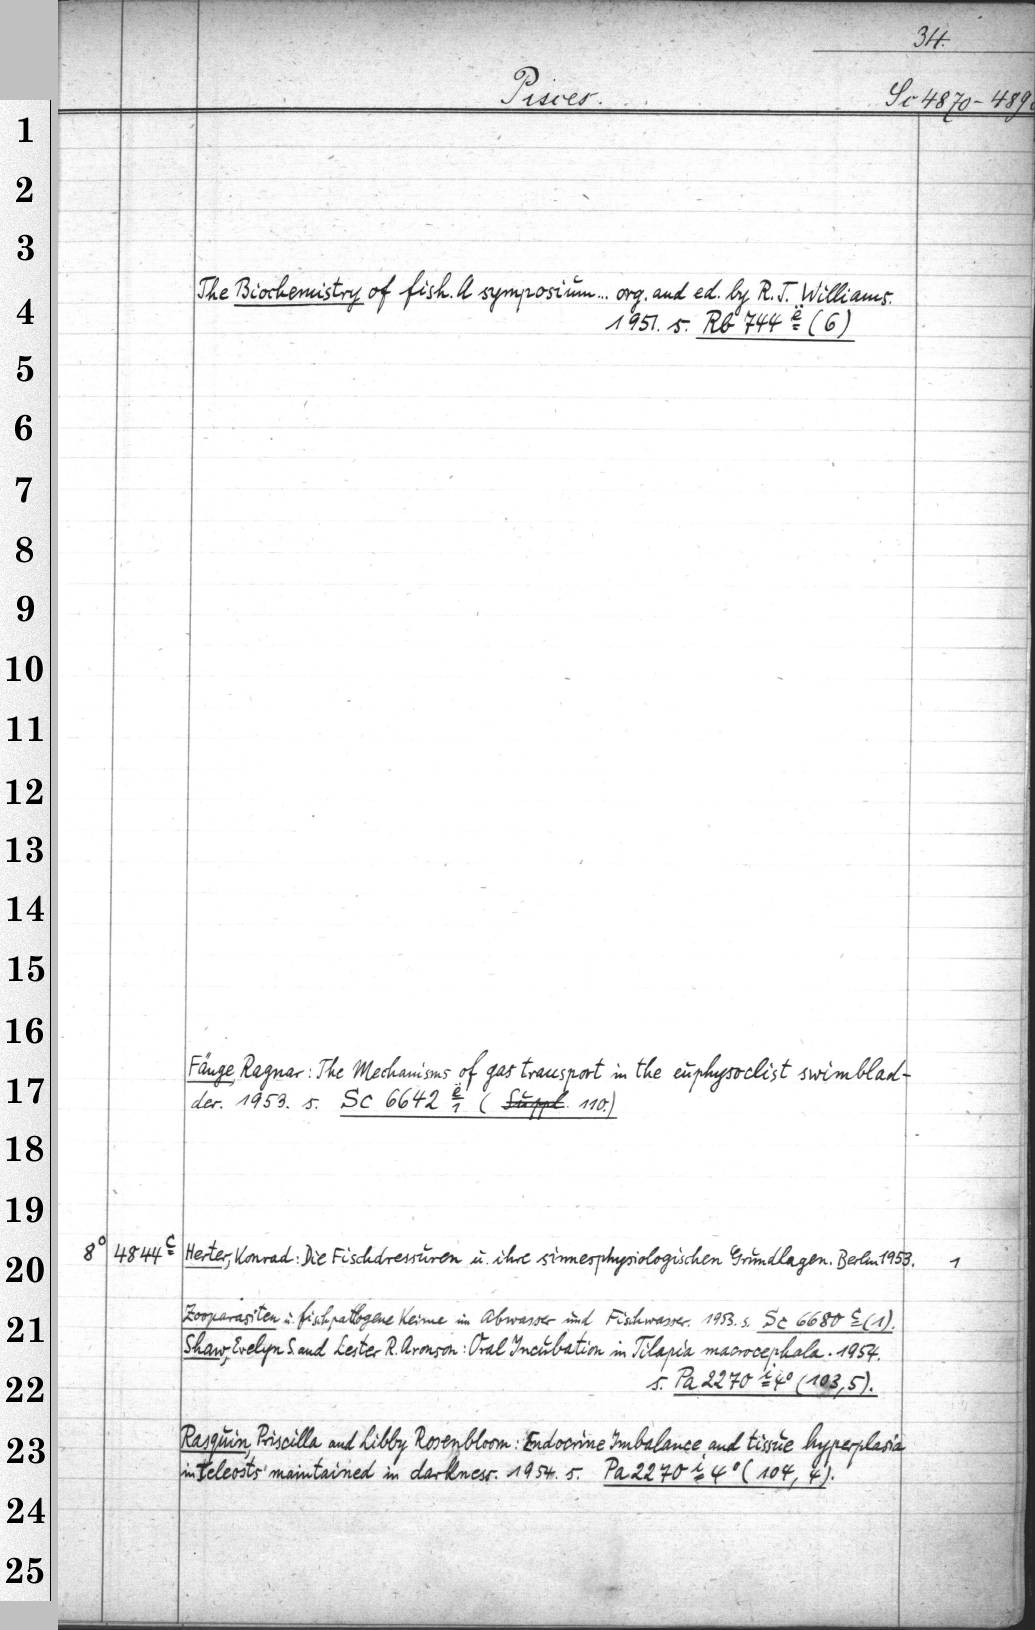 34.
Pisces.
Sc 4870-489
1
2
3
The Biochemistry of fish. A symposium... org. and ed. by R. J. Williams.
4
1951. s. Rb 744 ë (6)
5
6
7
8
9
10
11
12
13
14
15
16
Fänge, Ragnar: The Mechanisms of gas transport in the euphysoclist swimblad-
17
der. 1953. s. Sc 6642 ë/1 ( Suppl. 110.)
18
19
8° 4844 c Herter, Konrad: Die Fischdressuren u. ihre sinnesphysiologischen Grundlagen. Berlin 1953. 1
20
Zooparasiten u. fischpathogene Keime im Abwasser und Fischwasser. 1953. s. Sc 6680 c (1).
21
Shaw, Evelyn S. and Lester R. Aronson: Oral Incubation in Tilapia macrocephala. 1954.
22
s. Pa 2270 i 4° (103,5).
Rasquin, Priscilla and Libby Rosenbloom: Endocrine Imbalance and tissue hyperplasia
23
in teleosts maintained in darkness. 1954. s. Pa 2270 i 4° (104, 4).
24
25